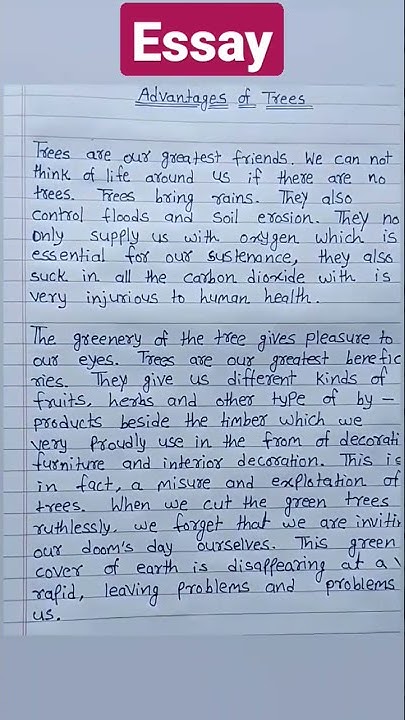 Essay
Advantages of Trees
Trees are our greatest friends. We can not
think of life around us if there are no
trees. Trees bring rains. They also
control floods and soil erosion. They no
only supply us with oxygen which is
essential for our sustenance, they also
suck in all the carbon dioxide with is
very injurious to human health.
The greenery of the tree gives pleasure to
our eyes. Trees are our greatest benefic
ries. They give us different kinds of
fruits, herbs and other type of by -
products beside the timber which we
very proudly use in the from of decorati
furniture and interior decoration. This is
in fact, a misure and explotation of
trees. When we cut the green trees
ruthlessly, we forget that we are inviti
our doom's day ourselves. This green
cover of earth is disappearing at a
rapid, leaving problems and problems
us.